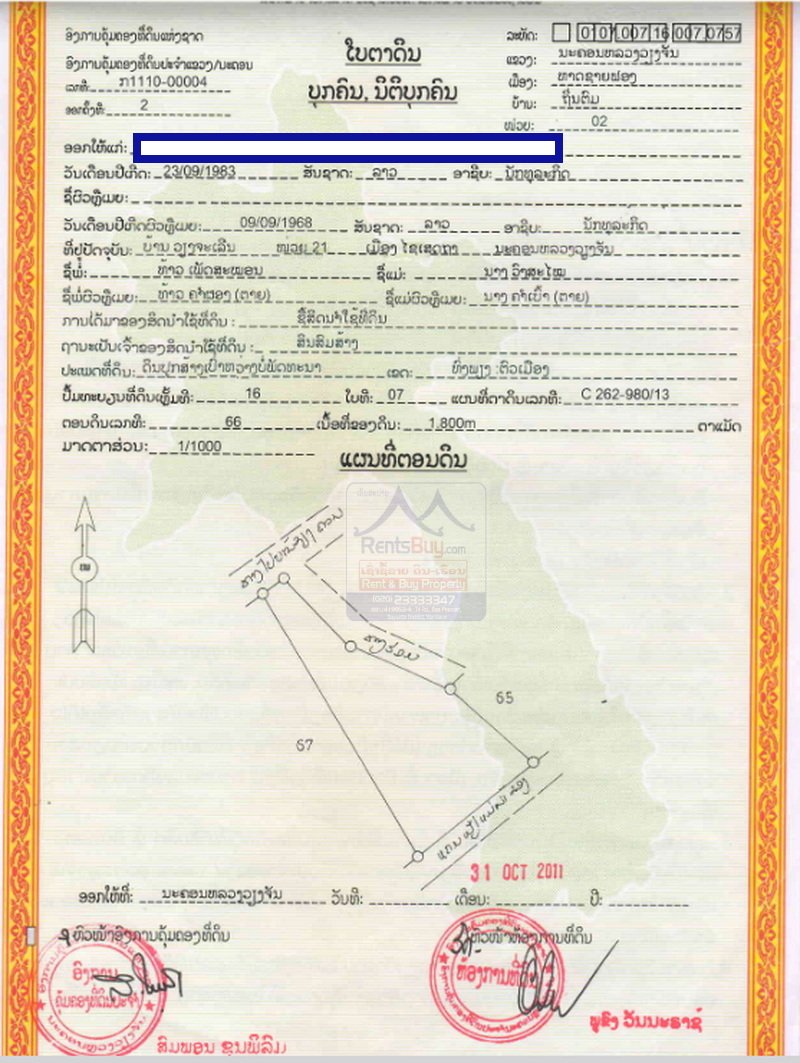 ອົງການຄຸ້ມຄອງທີ່ດິນແຫ່ງຊາດ
ໃບຕາດິນ
ລະຫັດ: 0101.007 16 007.0757
ອົງການຄຸ້ມຄອງທີ່ດິນປະຈຳແຂວງ/ນະຄອນ
ແຂວງ: ນະຄອນຫລວງວຽງຈັນ
ເລກທີ: ກ1110-00004
ບຸກຄົນ, ນິຕິບຸກຄົນ
ເມືອງ: ຫາດຊາຍຟອງ
ອອກຄັ້ງທີ: 2
ບ້ານ: ຖິ່ນຕົມ
ໜ່ວຍ: 02
ອອກໃຫ້ແກ່:
ວັນເດືອນປີເກີດ: 23/09/1983 ສັນຊາດ: ລາວ ອາຊີບ: ນັກທຸລະກິດ
ຊື່ຜົວຫຼືເມຍ:
ວັນເດືອນປີເກີດຜົວຫຼືເມຍ: 09/09/1968 ສັນຊາດ: ລາວ ອາຊີບ: ນັກທຸລະກິດ
ທີ່ຢູ່ປັດຈຸບັນ: ບ້ານ ວຽງຈະເລີນ ໜ່ວຍ 21 ເມືອງ ໄຊເສດຖາ ນະຄອນຫລວງວຽງຈັນ
ຊື່ພໍ່: ທ້າວ ເພັດສະໝອນ ຊື່ແມ່: ນາງ ວິໄສະໄໝ
ຊື່ພໍ່ຜົວຫຼືເມຍ: ທ້າວ ຄຳຜອງ (ຕາຍ) ຊື່ແມ່ຜົວຫຼືເມຍ: ນາງ ຄຳເບົ້າ (ຕາຍ)
ການໄດ້ມາຂອງສິດນຳໃຊ້ທີ່ດິນ : ຊື້ສິດນຳໃຊ້ທີ່ດິນ
ຖານະເປັນເຈົ້າຂອງສິດນຳໃຊ້ທີ່ດິນ : ສິນສົມສ້າງ
ປະເພດທີ່ດິນ: ດິນປຸກສ້າງເປົ່າຫວ່າງບໍ່ພັດທະນາ ເຂດ: ທົ່ງພຽງ :ຕົວເມືອງ
ປຶ້ມທະບຽນທີ່ດິນເຫຼັ້ມທີ: 16 ໃບທີ: 07 ແຜນທີ່ຕາດິນເລກທີ: C 262-980/13
ຕອນດິນເລກທີ: 66 ເນື້ອທີ່ຂອງດິນ: 1,800m ຕາແມັດ
ມາດຕາສ່ວນ: 1/1000
ແຜນທີ່ຕອນດິນ
RentsBuy.com
ເຊົ່າຊື້ຂາຍ ດິນ-ເຮືອນ
Rent & Buy Property
(020) 23333347
ທາງຮ່ອມ
65
67
31 OCT 2011
ອອກໃຫ້ທີ່: ນະຄອນຫລວງວຽງຈັນ ວັນທີ: ເດືອນ: ປີ:
ຫົວໜ້າອົງການຄຸ້ມຄອງທີ່ດິນ
ຫົວໜ້າຫ້ອງການທີ່ດິນ
ອົງການ
ຄຸ້ມຄອງທີ່ດິນປະຈຳ
ນະຄອນຫຼວງວຽງຈັນ
ຫ້ອງການທີ່ດິນ
ສົມພອນ ຂຸນພິລົມ
ພູວົງ ວັນນະຣາຊ໌